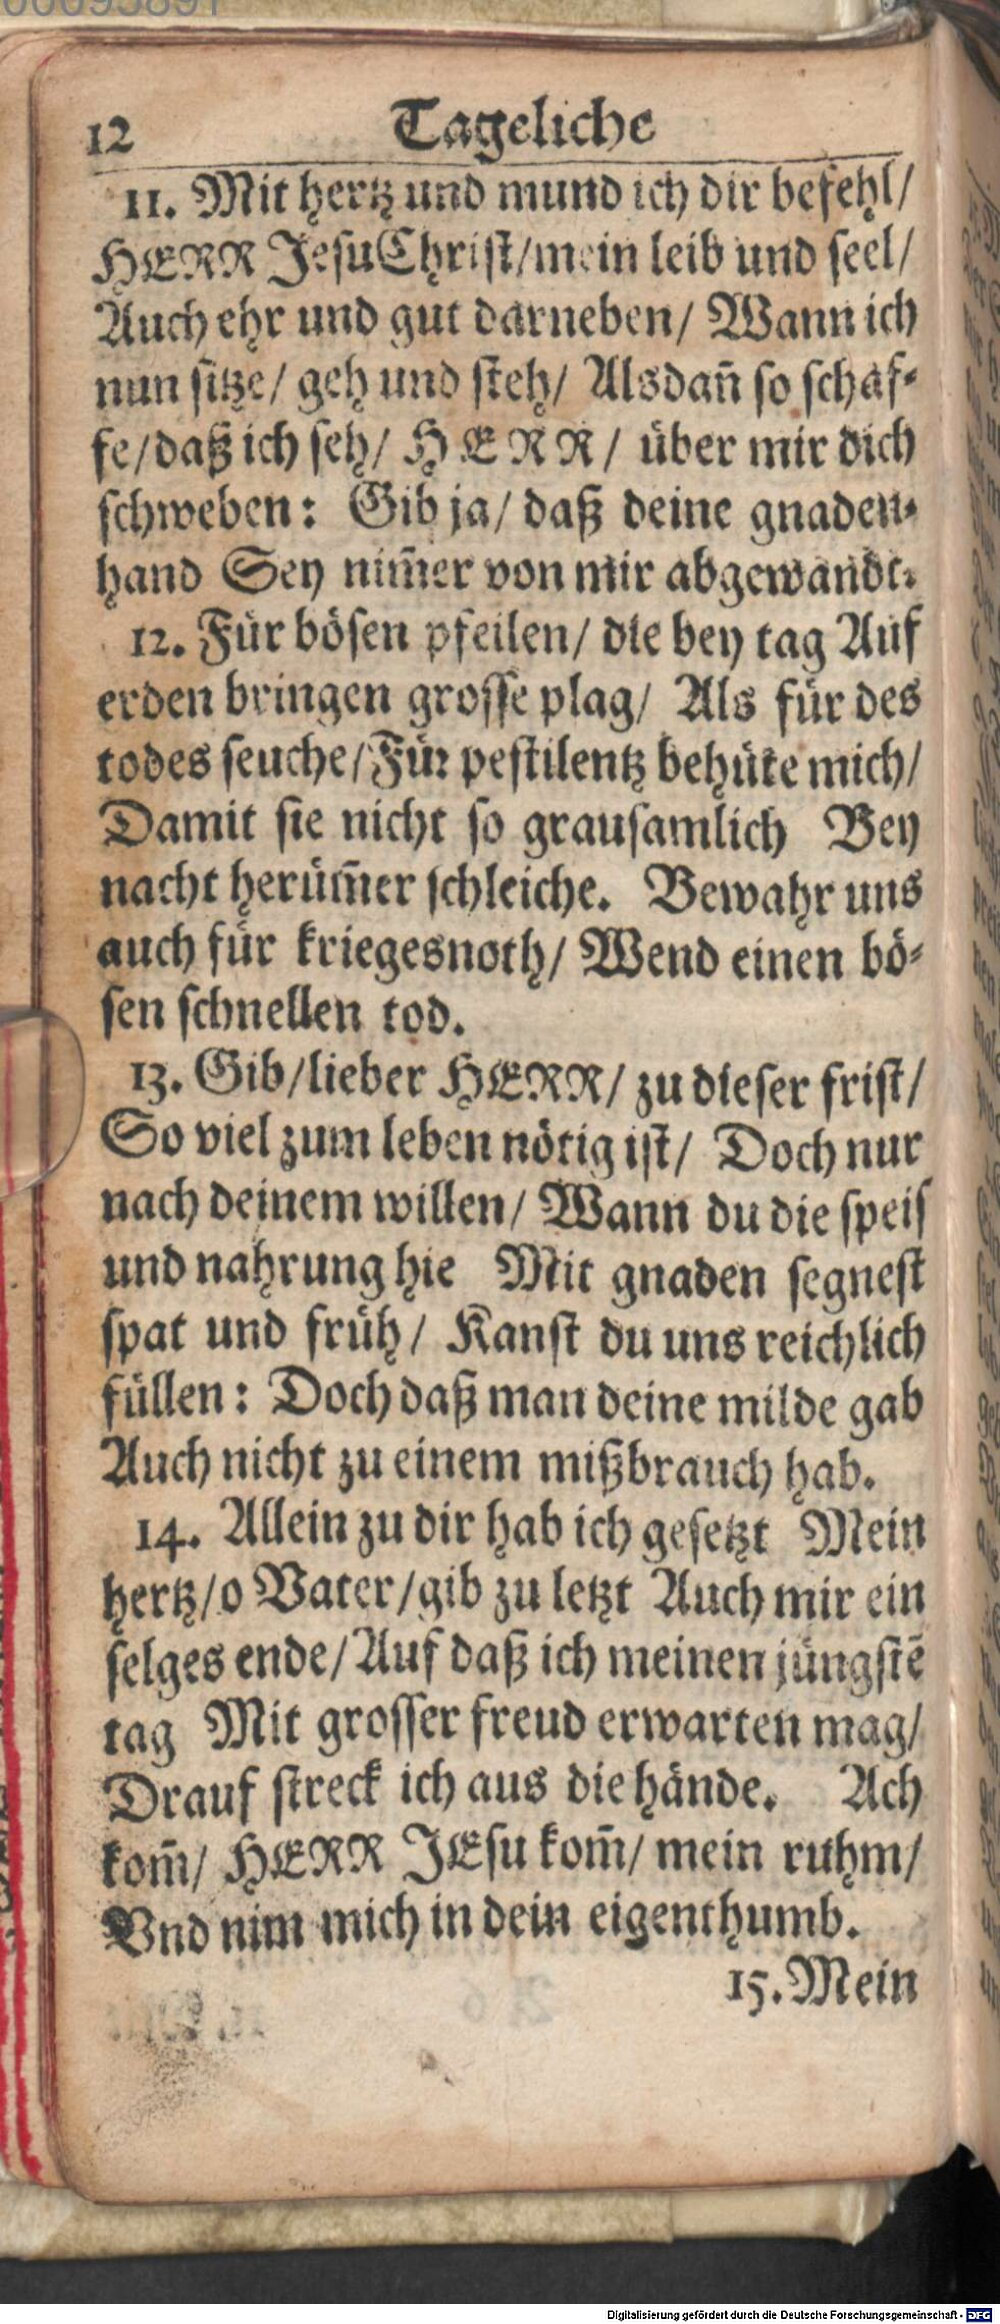 12 Tageliche
11. Mit hertz und mund ich dir befehl/
HERR Jesu Christ/mein leib und seel/
Auch ehr und gut darneben/ Wann ich
nun sitze/ geh und steh/ Alsdañ so schaf-
fe/daß ich seh/ HERR/ über mir dich
schweben: Gib ja/ daß deine gnaden-
hand Sey nim̃er von mir abgewandt.
12. Für bösen pfeilen/ die bey tag Auf
erden bringen grosse plag/ Als für des
todes seuche/Für pestilentz behüte mich/
Damit sie nicht so grausamlich Bey
nacht herüm̃er schleiche. Bewahr uns
auch für kriegesnoth/ Wend einen bö-
sen schnellen tod.
13. Gib/lieber HERR/ zu dieser frist/
So viel zum leben nötig ist/ Doch nur
nach deinem willen/ Wann du die speis
und nahrung hie Mit gnaden segnest
spat und früh/ Kanst du uns reichlich
füllen: Doch daß man deine milde gab
Auch nicht zu einem mißbrauch hab.
14. Allein zu dir hab ich gesetzt Mein
hertz/o Vater/gib zu letzt Auch mir ein
selges ende/Auf daß ich meinen jüngstẽ
tag Mit grosser freud erwarten mag/
Drauf streck ich aus die hände. Ach
kom̃/ HERR JEsu kom̃/ mein ruhm/
Vnd nim mich in dein eigenthumb.
15. Mein
Digitalisierung gefördert durch die Deutsche Forschungsgemeinschaft - DFG